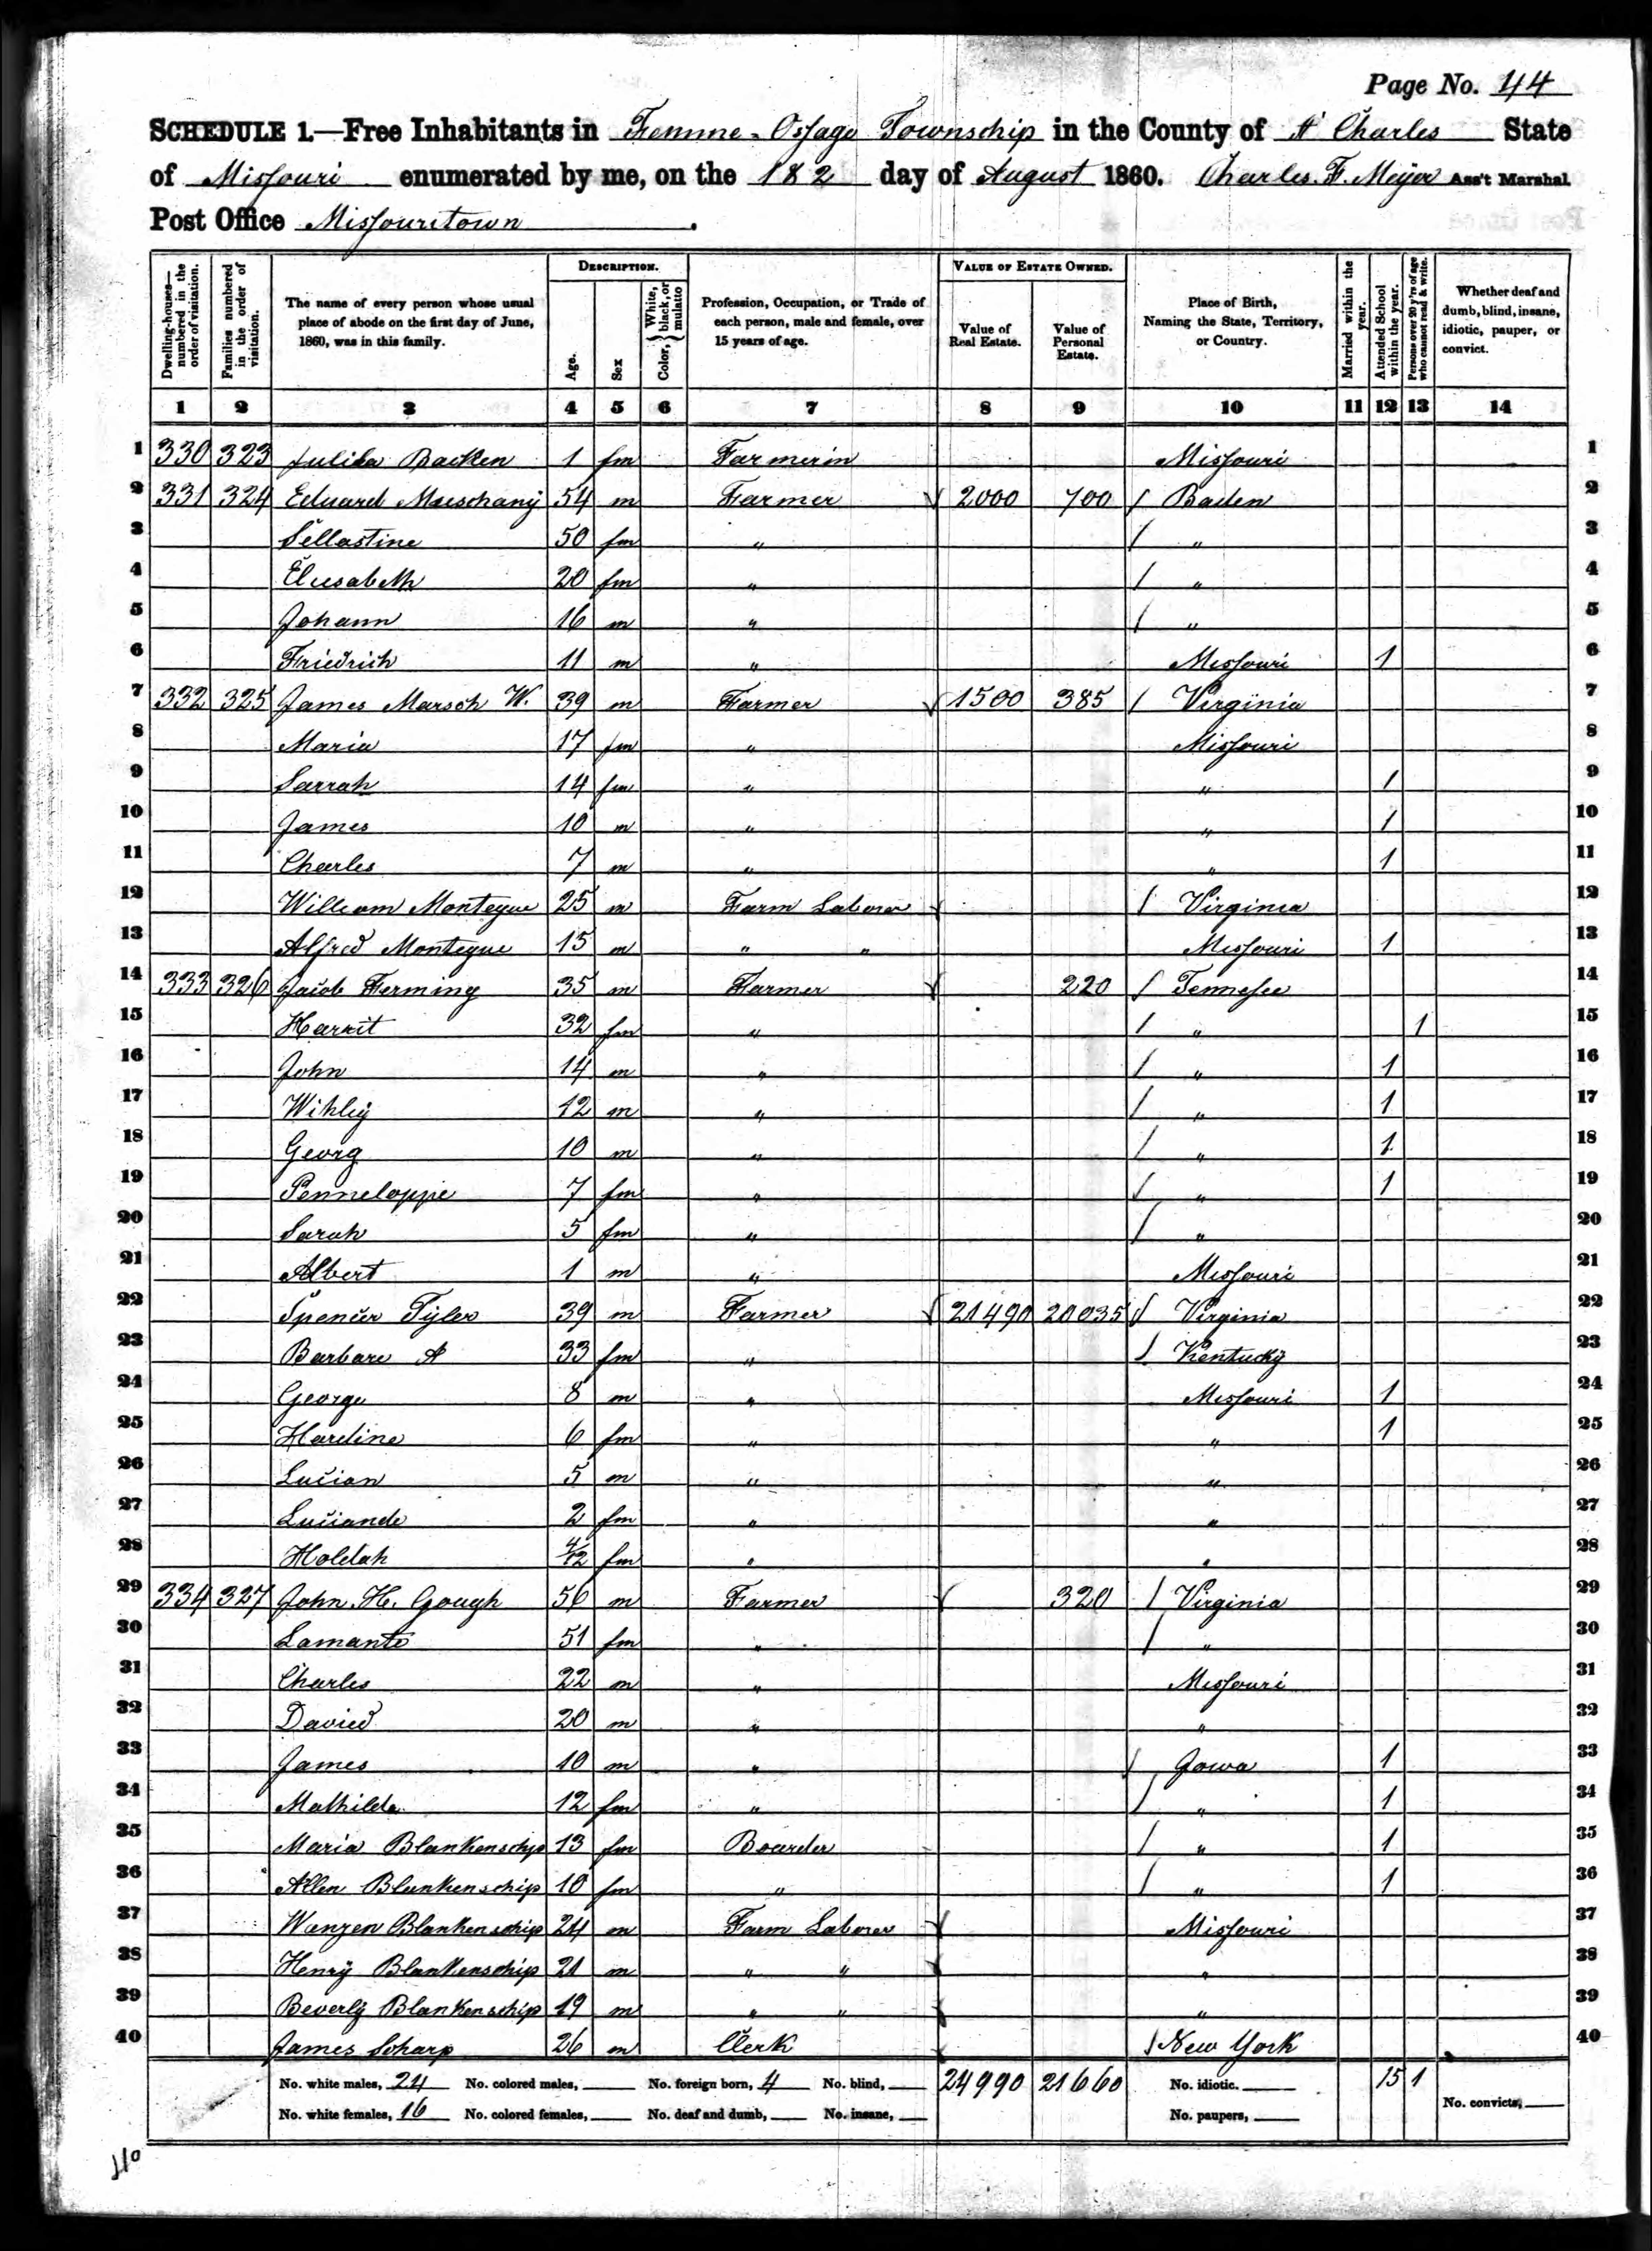 Page No. 44
SCHEDULE 1.—Free Inhabitants in Femme-Ossage Township in the County of St Charles State
of Missouri enumerated by me, on the 182 day of August 1860. Charles. F. Meyer Ass't Marshal
Post Office Missouritown.
Dwelling-houses—numbered in the order of visitation.
Families numbered in the order of visitation.
The name of every person whose usual place of abode on the first day of June, 1860, was in this family.
DESCRIPTION.
Age.
Sex
Color, { White, black, or mulatto
Profession, Occupation, or Trade of each person, male and female, over 15 years of age.
VALUE OF ESTATE OWNED.
Value of Real Estate.
Value of Personal Estate.
Place of Birth, Naming the State, Territory, or Country.
Married within the year.
Attended School within the year.
Persons over 20 y'rs of age who cannot read & write.
Whether deaf and dumb, blind, insane, idiotic, pauper, or convict.
1 2 3 4 5 6 7 8 9 10 11 12 13 14
1 330 323 Julika Backen 1 fm Farmerin Missouri 1
2 331 324 Eduard Muschany 54 m Farmer 2000 700 / Baden 2
3 Sellastine 50 fm " / " 3
4 Elisabeth 20 fm " / " 4
5 Johann 16 m " / " 5
6 Friedrich 11 m " Missouri 1 6
7 332 325 James Marsch W. 39 m Farmer 1500 385 / Virginia 7
8 Maria 17 fm " Missouri 8
9 Sarrah 14 fm " " 1 9
10 James 10 m " " 1 10
11 Charles 7 m " " 1 11
12 William Montegue 25 m Farm Laborer / Virginia 12
13 Alfred Montegue 15 m " " Missouri 1 13
14 333 326 Jacob Ferming 35 m Farmer 220 / Tennesee 14
15 Harrit 32 fm " / " 1 15
16 John 14 m " / " 1 16
17 Wihliy 12 m " / " 1 17
18 Georg 10 m " / " 1 18
19 Penneloppie 7 fm " / " 1 19
20 Sarah 5 fm " / " 20
21 Albert 1 m " Missouri 21
22 Spencer Tyler 39 m Farmer 21490 20035 / Virginia 22
23 Barbare A 33 fm " / Kentucky 23
24 George 8 m " Missouri 1 24
25 Hardine 6 fm " " 1 25
26 Lucian 5 m " " 26
27 Luciande 2 fm " " 27
28 Holdah 4/12 fm " " 28
29 334 327 John. H. Gough 56 m Farmer 320 / Virginia 29
30 Lamante 51 fm " / " 30
31 Charles 22 m " Missouri 31
32 Davied 20 m " " 32
33 James 10 m " / Jowa 1 33
34 Mathilde 12 fm " / " 1 34
35 Maria Blankenschip 13 fm Boarder / " 1 35
36 Allen Blankenschip 10 fm " / " 1 36
37 Wanzen Blankenschip 24 m Farm Laborer Missouri 37
38 Henry Blankenschip 21 m " " " 38
39 Beverly Blankenschip 19 m " " " 39
40 James Scharp 26 m Clerk / New York 40
No. white males, 24 No. colored males, No. foreign born, 4 No. blind, 24990 21660 No. idiotic. 15 1
No. white females, 16 No. colored females, No. deaf and dumb, No. insane, No. paupers, No. convicts,